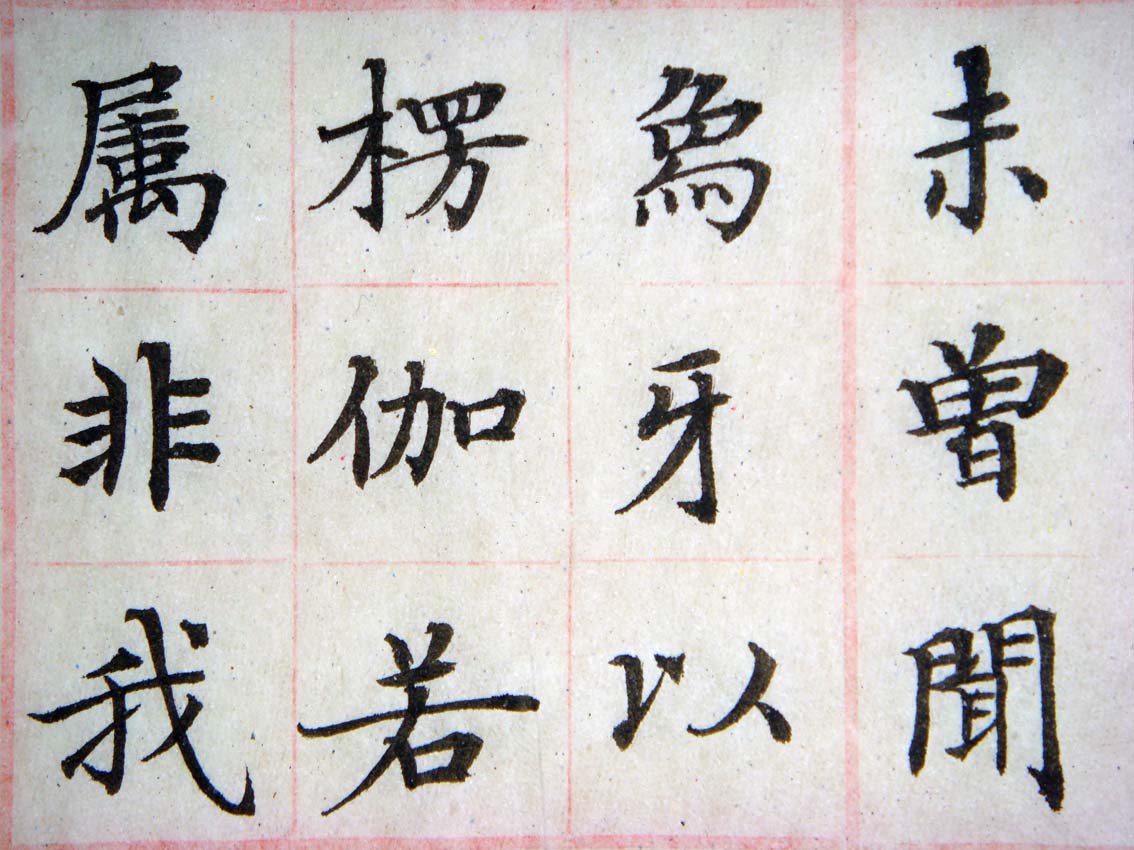 未曾聞
象牙以
楞伽若
属非我